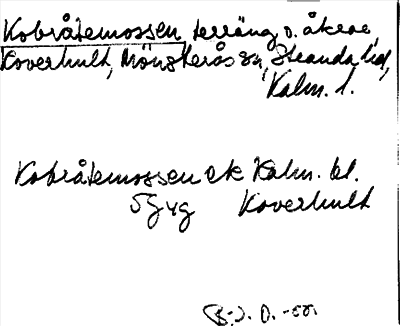 Kobråtemossen terräng o. åkrar
Koverhult, Mönsterås sn, Stranda hd,
Kalm. l.
Kobråtemossen ek Kalm. bl.
5G 4g Koverhult